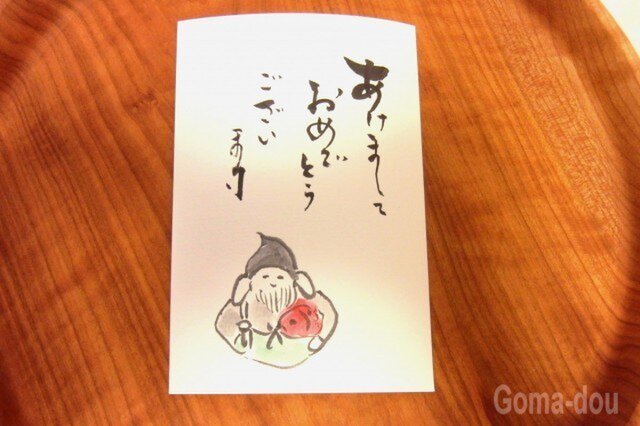 あけまして
おめでとう
ござい
ます
Goma-dou